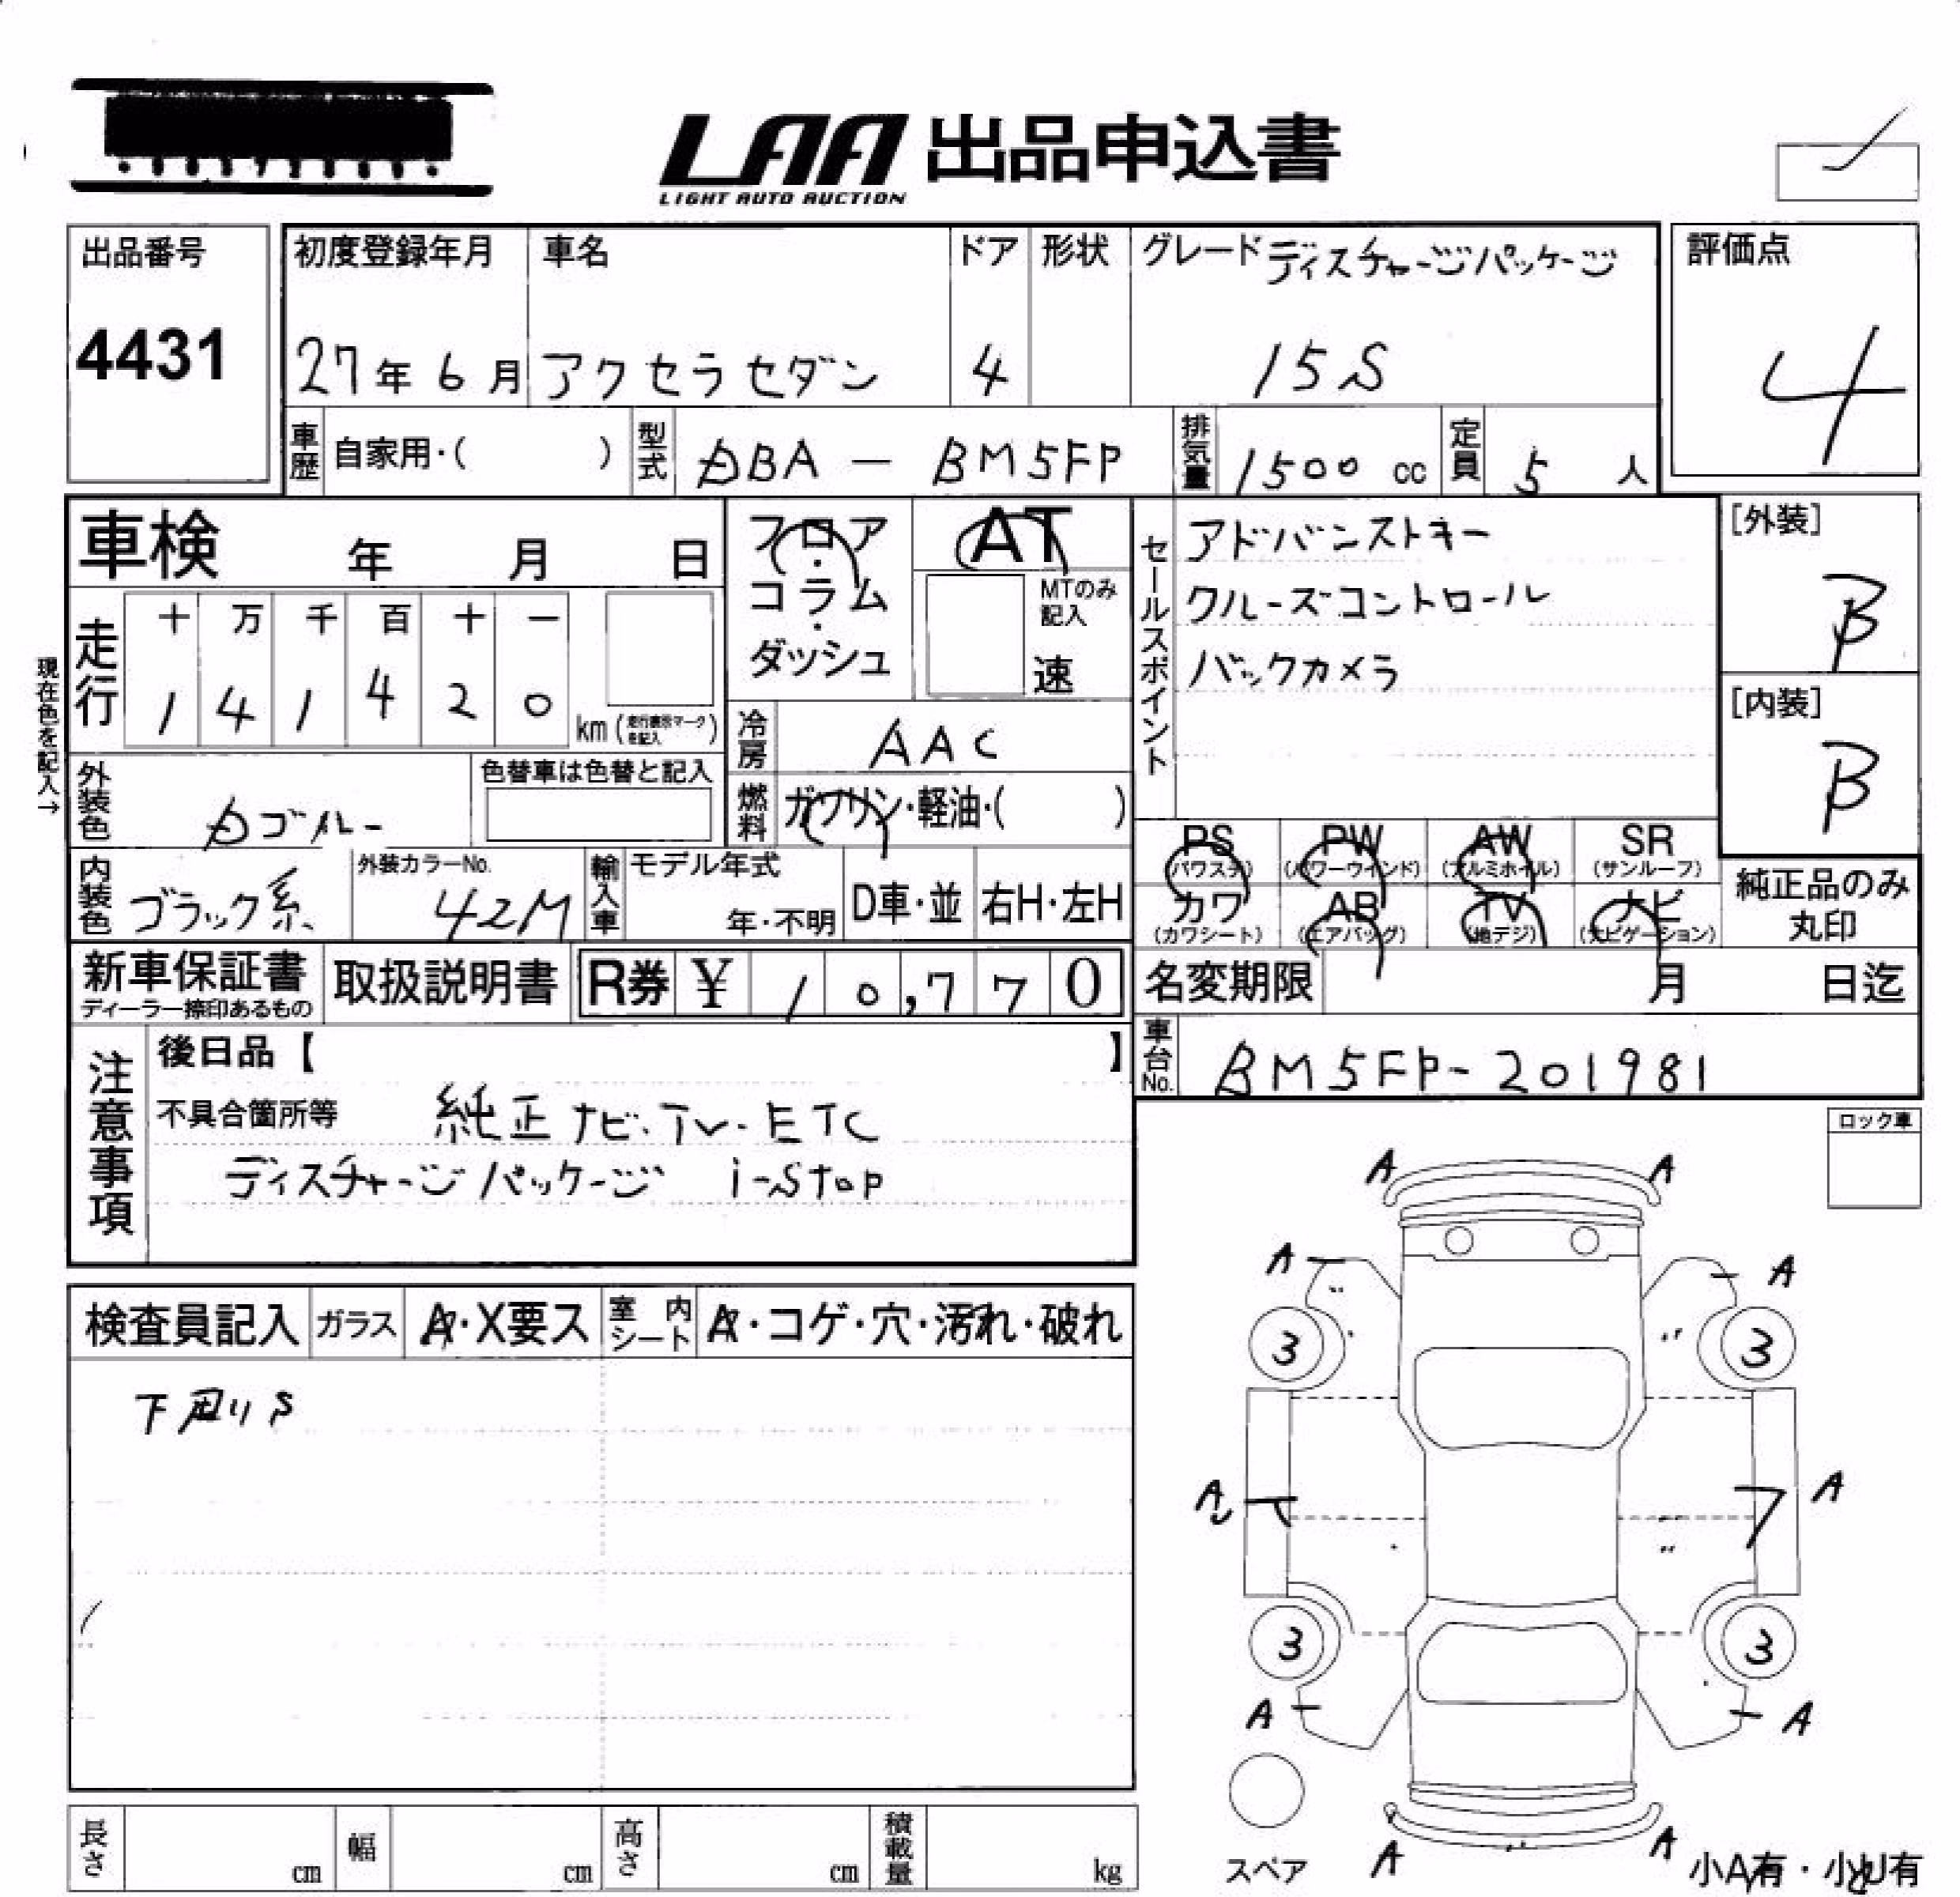 LAA 出品申込書
LIGHT AUTO AUCTION
出品番号
4431
初度登録年月
27年 6月
車名
アクセラセダン
ドア
4
形状
グレード ディスチャージパッケージ
15S
評価点
4
車歴 自家用・( )
型式 DBA - BM5FP
排気量 1500 cc
定員 5 人
車検 年 月 日
フロア
・
コラム
・
ダッシュ
AT
MTのみ
記入
速
セールスポイント
アドバンストキー
クルーズコントロール
バックカメラ
[外装]
B
[内装]
B
現在色を記入→
走行
十 万 千 百 十 一
1 4 1 4 2 0
km (走行表示マークを記入)
冷房 AAC
燃料 ガソリン・軽油・( )
外装色
色替車は色替と記入
内装色
外装カラーNo.
42M
輸入車
モデル年式
年・不明
D車・並
右H・左H
PS
(パワステ)
PW
(パワーウインド)
AW
(アルミホイル)
SR
(サンルーフ)
カワ
(カワシート)
AB
(エアバッグ)
TV
(地デジ)
ナビ
(ナビゲーション)
純正品のみ
丸印
新車保証書
ディーラー捺印あるもの
取扱説明書
R券 ¥ 10,770
名変期限 月 日迄
車台No. BM5FP-201981
注意事項
後日品【 】
不具合箇所等 純正ナビ・TV・ETC
ディスチャージパッケージ i-stop
ロック車
検査員記入
ガラス
A・X要ス
室内シート
A・コゲ・穴・汚れ・破れ
下廻りS
A A
A A
3 3
A A
3 3
A A
A A
スペア
小A有・小U有
長さ cm
幅 cm
高さ cm
積載量 kg